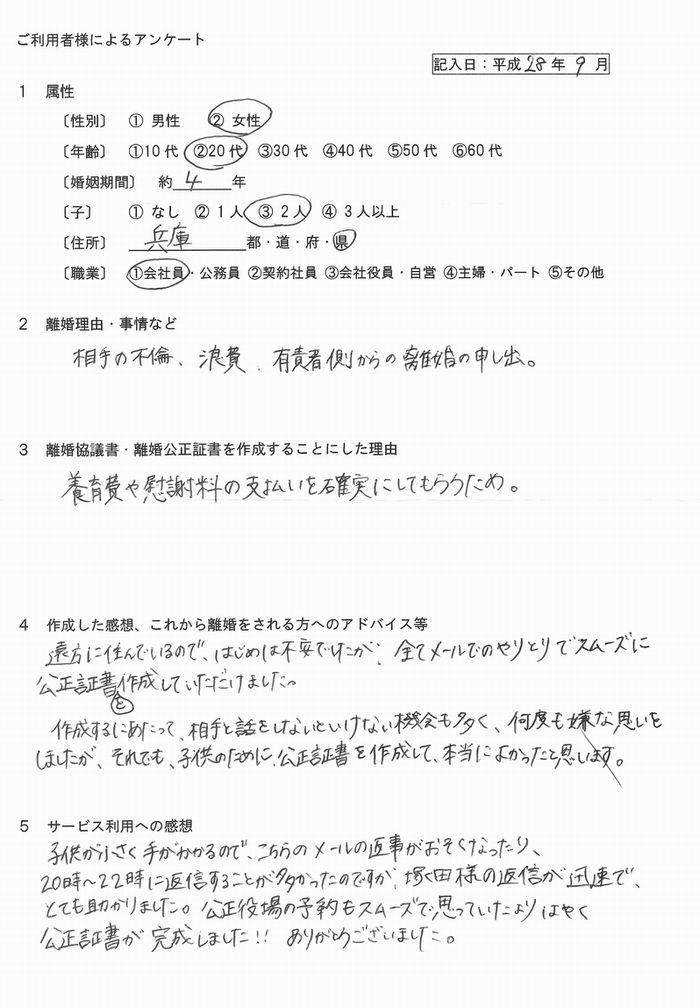 ご利用者様によるアンケート
記入日：平成 28 年 9 月
1 属性
〔性別〕 ① 男性 ② 女性
〔年齢〕 ①10代 ②20代 ③30代 ④40代 ⑤50代 ⑥60代
〔婚姻期間〕 約 4 年
〔子〕 ① なし ② 1人 ③ 2人 ④ 3人以上
〔住所〕 兵庫 都・道・府・県
〔職業〕 ①会社員・公務員 ②契約社員 ③会社役員・自営 ④主婦・パート ⑤その他
2 離婚理由・事情など
相手の不倫、浪費、有責者側からの離婚の申し出。
3 離婚協議書・離婚公正証書を作成することにした理由
養育費や慰謝料の支払いを確実にしてもらうため。
4 作成した感想、これから離婚をされる方へのアドバイス等
遠方に住んでいるので、はじめは不安でしたが、全てメールでのやりとりでスムーズに
公正証書を作成していただけました。
作成するにあたって、相手と話をしないといけない機会も多く、何度も嫌な思いを
しましたが、それでも、子供のために、公正証書を作成して、本当によかったと思います。
5 サービス利用への感想
子供が小さく手がかかるので、こちらのメールの返事がおそくなったり、
20時～22時に返信することが多かったのですが、塚田様の返信が迅速で、
とても助かりました。公正役場の予約もスムーズで思っていたよりはやく
公正証書が完成しました!! ありがとうございました。